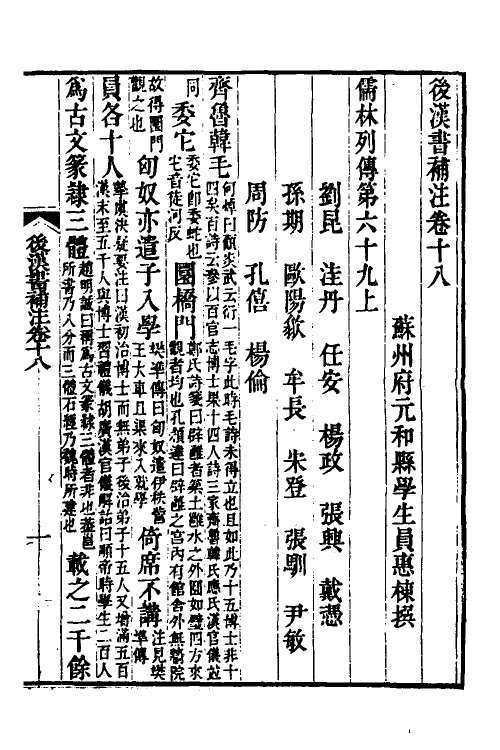 後漢書補注卷十八
蘇州府元和縣學生員惠棟撰
儒林列傳第六十九上
劉昆 洼丹 任安 楊政 張興 戴憑
孫期 歐陽歙 牟長 宋登 張馴 尹敏
周防 孔僖 楊倫
齊魯韓毛 何焯曰顧炎武云衍一毛字此時毛詩未得立也且如此乃十五博士非十四矣百詩云參以百官志博士果十四人詩三家齊魯韓氏應氏漢官儀並
同 委它 委它即委蛇也它音徒河反 圜橋門 鄭氏詩箋曰辟雝者築土雝水之外圓如璧四方來觀者均也孔穎達曰辟雝之宮內有館舍外無牆院
故得圜門觀之也 匈奴亦遣子入學 樊準傳曰匈奴遣伊秩訾王大車且渠來入就學 倚席不講 注見樊準傳
員各十人 華廣洪疑要注曰漢初治博士而無弟子後治弟子十五人又增滿五百漢末至五千人與博士習禮儀胡廣漢官儀解詁曰順帝時學生二百人
爲古文篆隸三體 趙明誠曰稱爲古文篆隸三體者非也蓋邕所書乃八分而三體石經乃魏時所建也 載之二千餘
後漢書補注卷十八
一